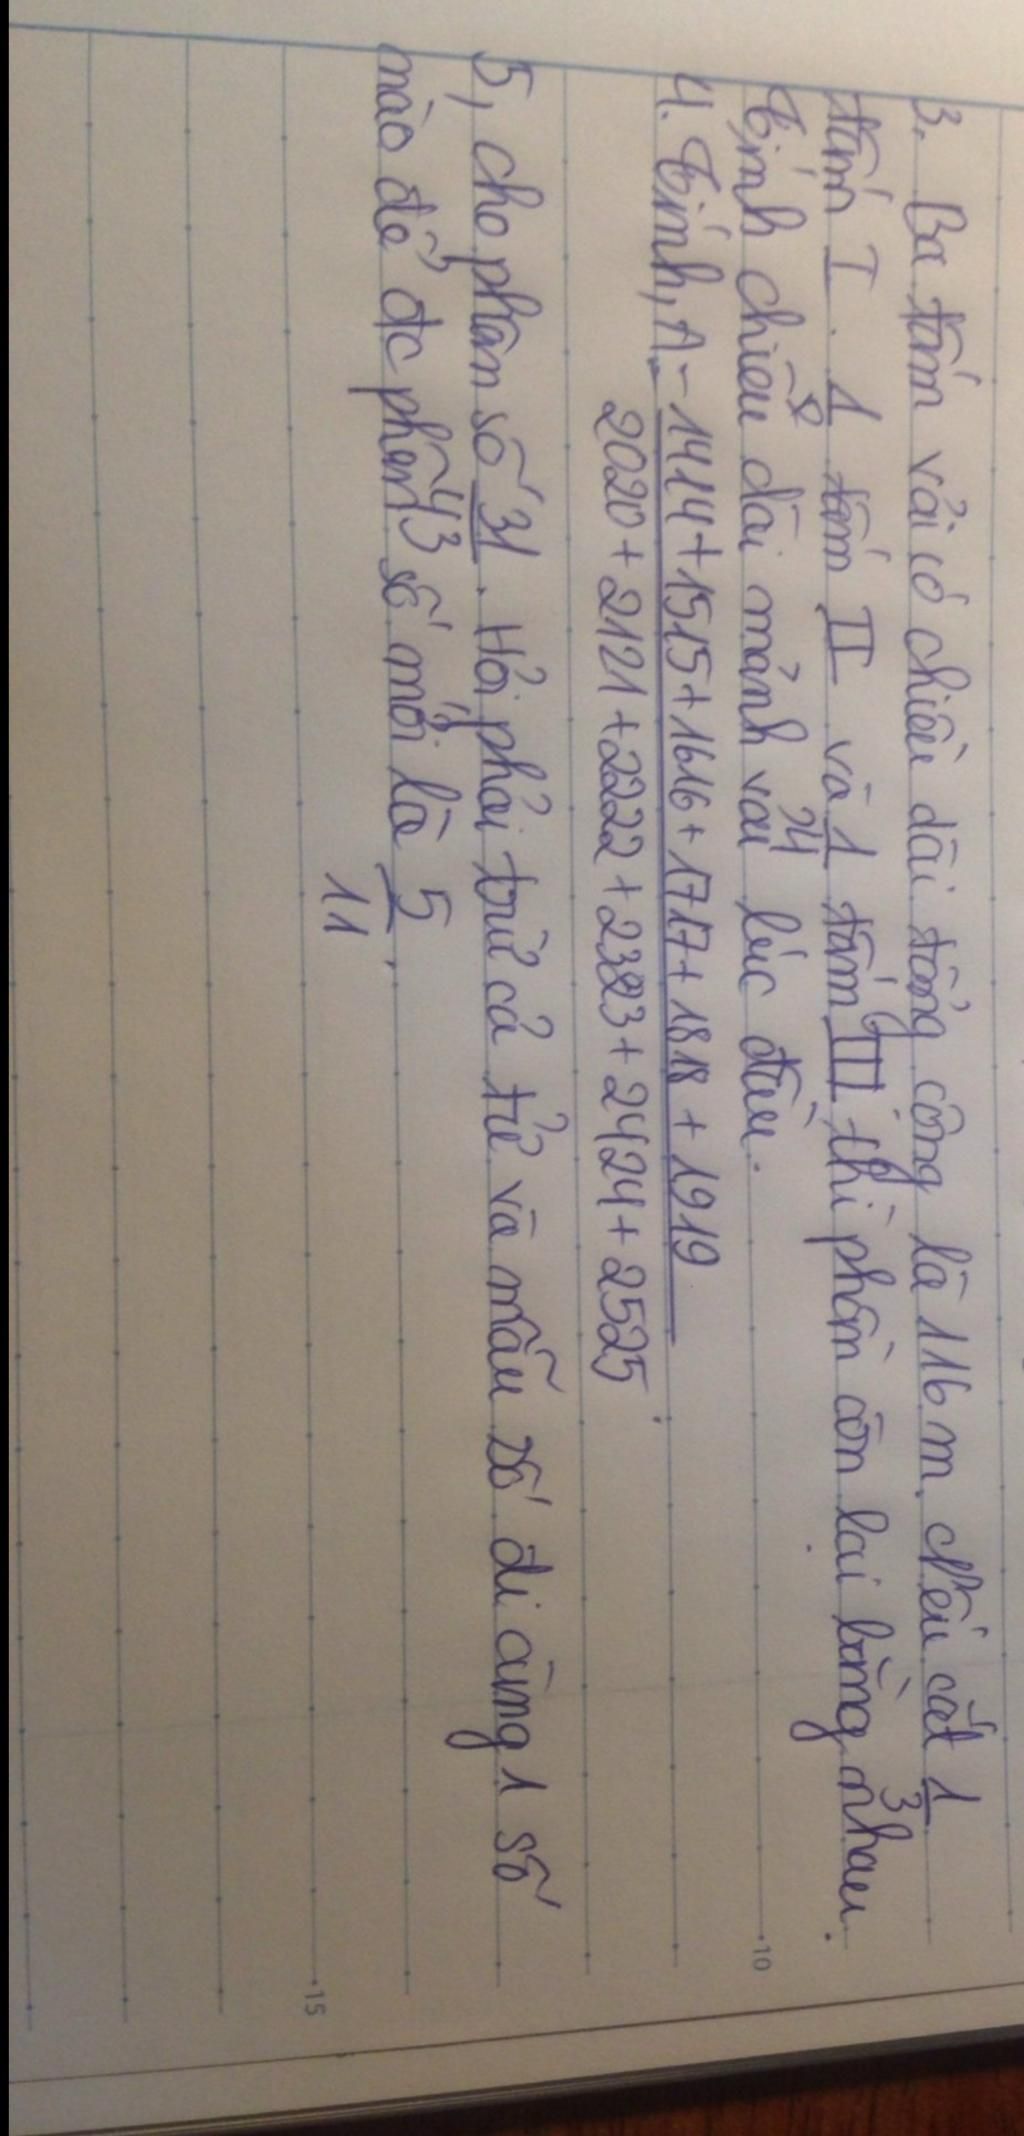 3. Ba tấm vải có chiều dài tổng cộng là 116 m. Nếu cắt 1/3
tấm I. 1/2 tấm II và 1/4 tấm III thì phần còn lại bằng nhau.
Tính chiều dài mảnh vải lúc đầu.
10
4. Tính, A = 1414 + 1515 + 1616 + 1717 + 1818 + 1919
2020 + 2121 + 2222 + 2323 + 2424 + 2525
5, cho phân số 31/43. Hỏi phải trừ cả tử và mẫu số đi cùng 1 số
nào để đc phân số mới là 5/11.
15